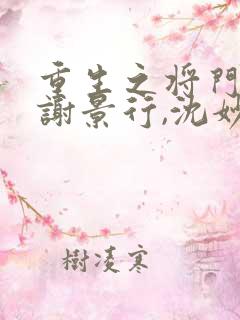 重生之将門
謝景行,沈妙
樹凌寒